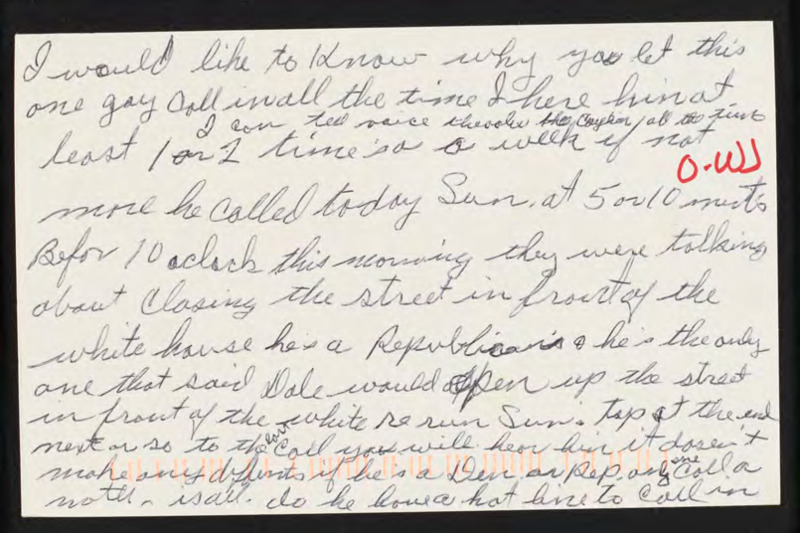 I would like to Know why you let this
one gay Call in all the time I here him at
I can tell voice he all the time
least 1 or 2 time's a week if not
O-WJ
more he called today Sun. at 5 or 10 minets
Befor 10 oclock this morning they were talking
about Closing the street in front of the
white house he's a Republican he's the only
one that said Dole would open up the street
in front of the white re run Sun. tap at the end
next or so to the last Call you will hear him it dosen't
make any if he's a Dem or Rep. only one Call a
is all. do he have a hot line to Call in